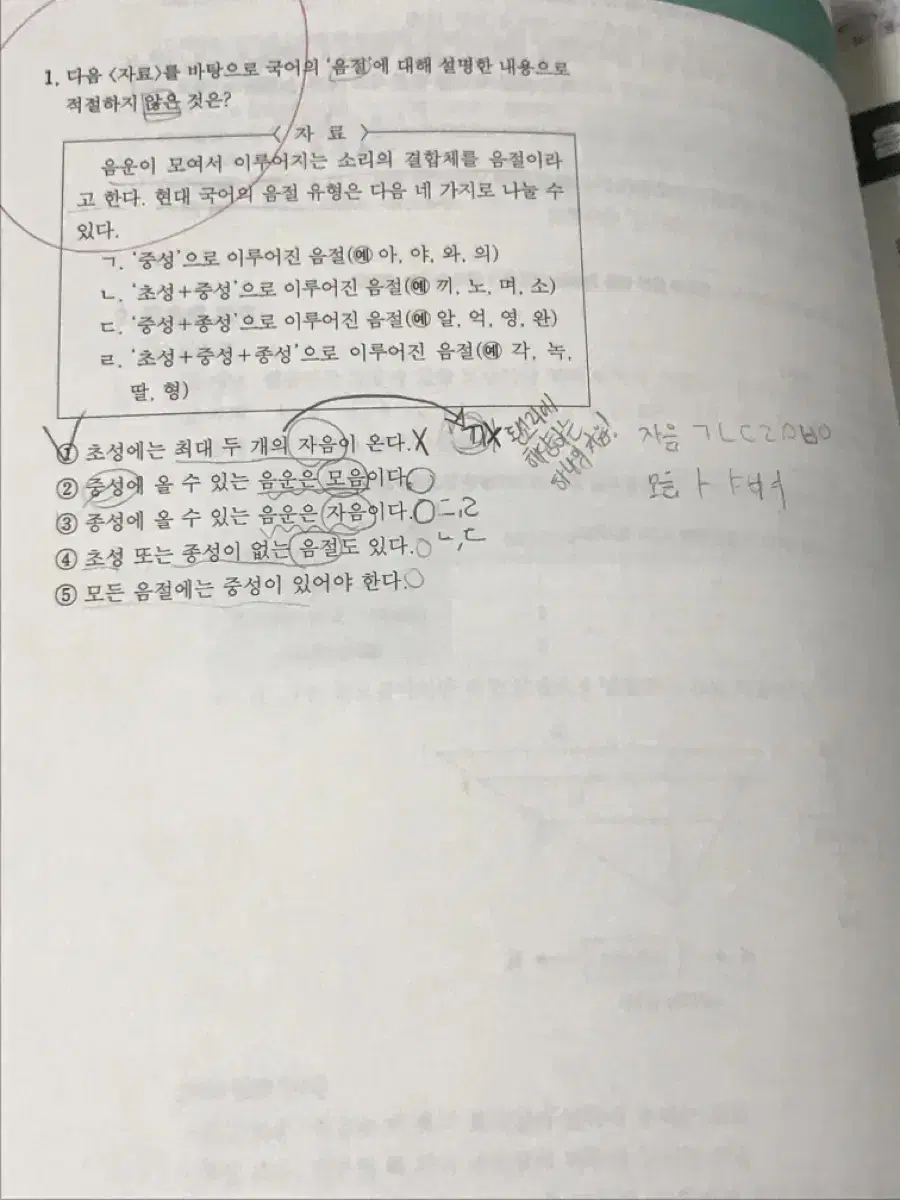 1. 다음 <자료>를 바탕으로 국어의 '음절'에 대해 설명한 내용으로
적절하지 않은 것은?
< 자 료 >
음운이 모여서 이루어지는 소리의 결합체를 음절이라
고 한다. 현대 국어의 음절 유형은 다음 네 가지로 나눌 수
있다.
ㄱ. '중성'으로 이루어진 음절(예 아, 야, 와, 의)
ㄴ. '초성+중성'으로 이루어진 음절(예 끼, 노, 며, 소)
ㄷ. '중성+종성'으로 이루어진 음절(예 알, 억, 영, 완)
ㄹ. '초성+중성+종성'으로 이루어진 음절(예 각, 녹,
딸, 형)
① 초성에는 최대 두 개의 자음이 온다. X
② 중성에 올 수 있는 음운은 모음이다. ○
③ 종성에 올 수 있는 음운은 자음이다. ○ ㄷ,ㄹ
④ 초성 또는 종성이 없는 음절도 있다. ○ ㄴ,ㄷ
⑤ 모든 음절에는 중성이 있어야 한다. ○
ㄲ X 된소리에
해당하는
하나의 자음!
자음 ㄱㄴㄷㄹㅁㅂㅇ
모음 ㅏ ㅑ